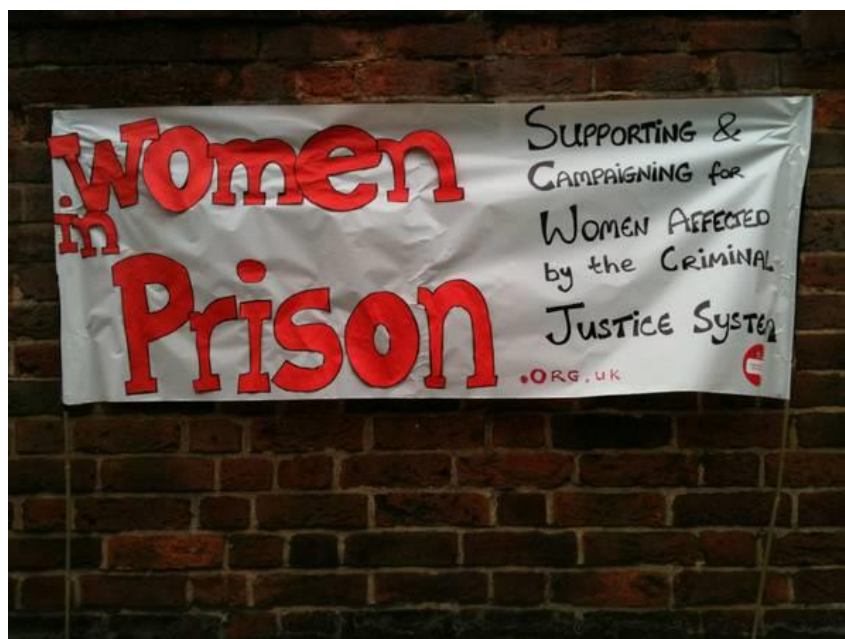 women
in
Prison
SUPPORTING &
CAMPAIGNING for
WOMEN AFFECTED
by the CRIMINAL
JUSTICE SYSTEM
.ORG.UK